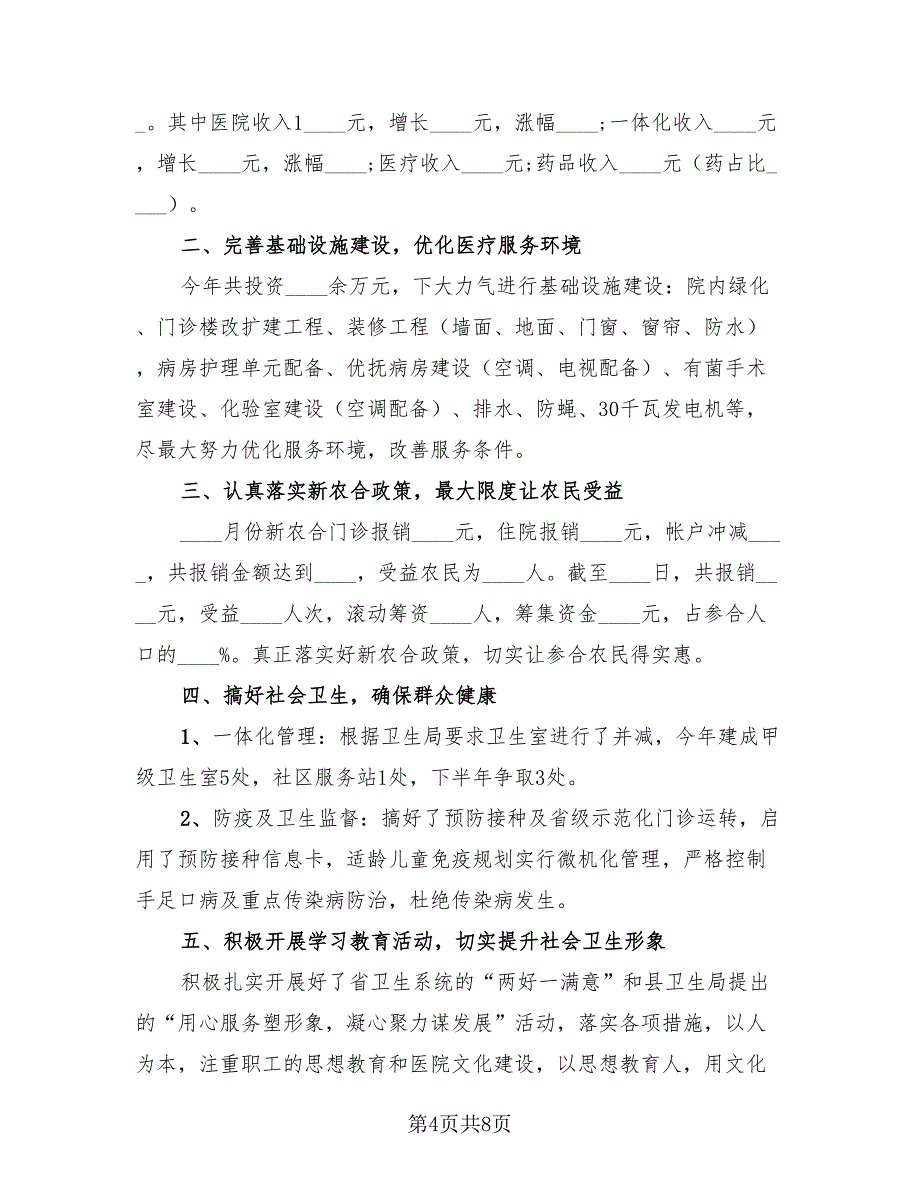 _。其中医院收入1____元，增长____元，涨幅____;一体化收入____元
，增长____元，涨幅____;医疗收入____元;药品收入____元（药占比_
___）。
二、完善基础设施建设，优化医疗服务环境
今年共投资____余万元，下大力气进行基础设施建设：院内绿化
、门诊楼改扩建工程、装修工程（墙面、地面、门窗、窗帘、防水）
，病房护理单元配备、优抚病房建设（空调、电视配备）、有菌手术
室建设、化验室建设（空调配备）、排水、防蝇、30千瓦发电机等，
尽最大努力优化服务环境，改善服务条件。
三、认真落实新农合政策，最大限度让农民受益
____月份新农合门诊报销____元，住院报销____元，帐户冲减___
_，共报销金额达到____，受益农民为____人。截至____日，共报销__
__元，受益____人次，滚动筹资____人，筹集资金____元，占参合人
口的____%。真正落实好新农合政策，切实让参合农民得实惠。
四、搞好社会卫生，确保群众健康
1、一体化管理：根据卫生局要求卫生室进行了并减，今年建成甲
级卫生室5处，社区服务站1处，下半年争取3处。
2、防疫及卫生监督：搞好了预防接种及省级示范化门诊运转，启
用了预防接种信息卡，适龄儿童免疫规划实行微机化管理，严格控制
手足口病及重点传染病防治，杜绝传染病发生。
五、积极开展学习教育活动，切实提升社会卫生形象
积极扎实开展好了省卫生系统的“两好一满意”和县卫生局提出
的“用心服务塑形象，凝心聚力谋发展”活动，落实各项措施，以人
为本，注重职工的思想教育和医院文化建设，以思想教育人，用文化
第4页共8页